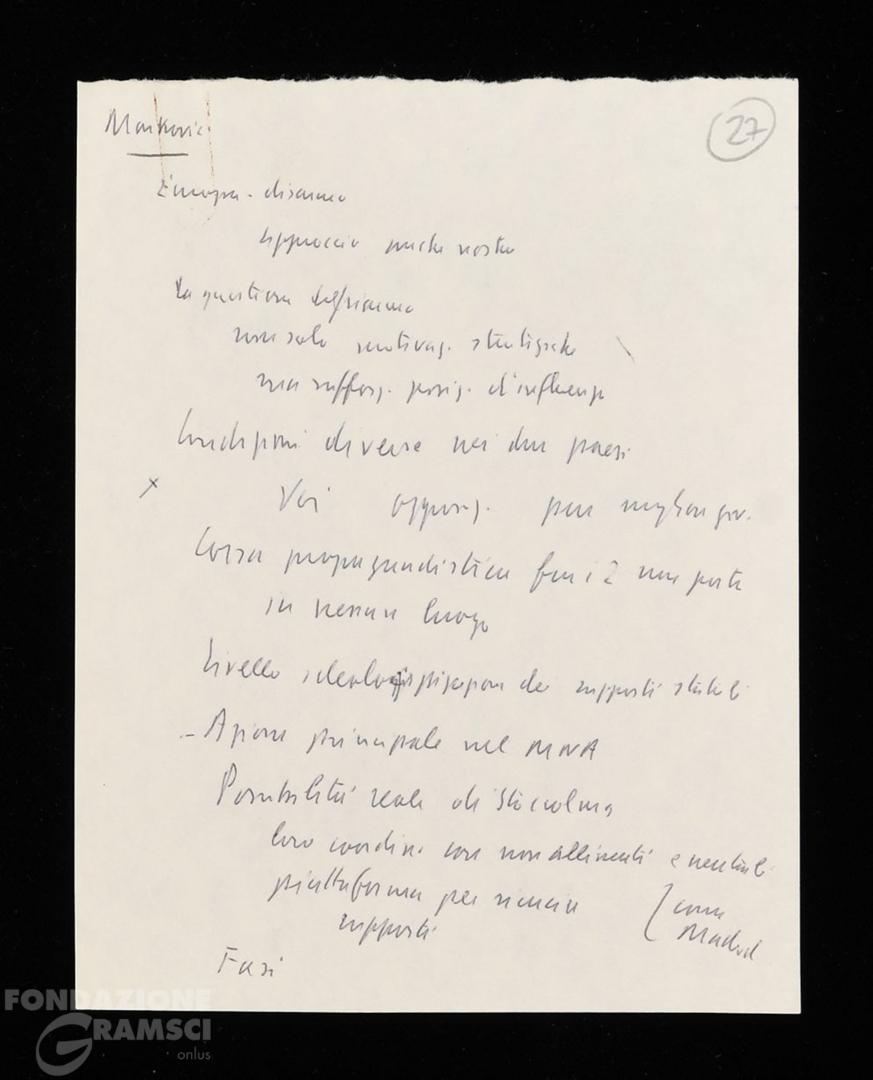 Markovic
27
Europa - disarmo
approccio anche nostro
La questione
non solo motivaz. strategiche
ma rafforz. posiz. d'influenza
Condizioni diverse nei due paesi
x Voi appogg. per
Corsa propagandistica fra i 2 non porta
in nessun luogo
Livello dei rapporti statali
- Azione principale nel MNA
Possibilità reale di Stoccolma
loro coordin. con non allineati e neutrali
piattaforma per
rapporti
come
Madrid
Fasi
FONDAZIONE
GRAMSCI
onlus